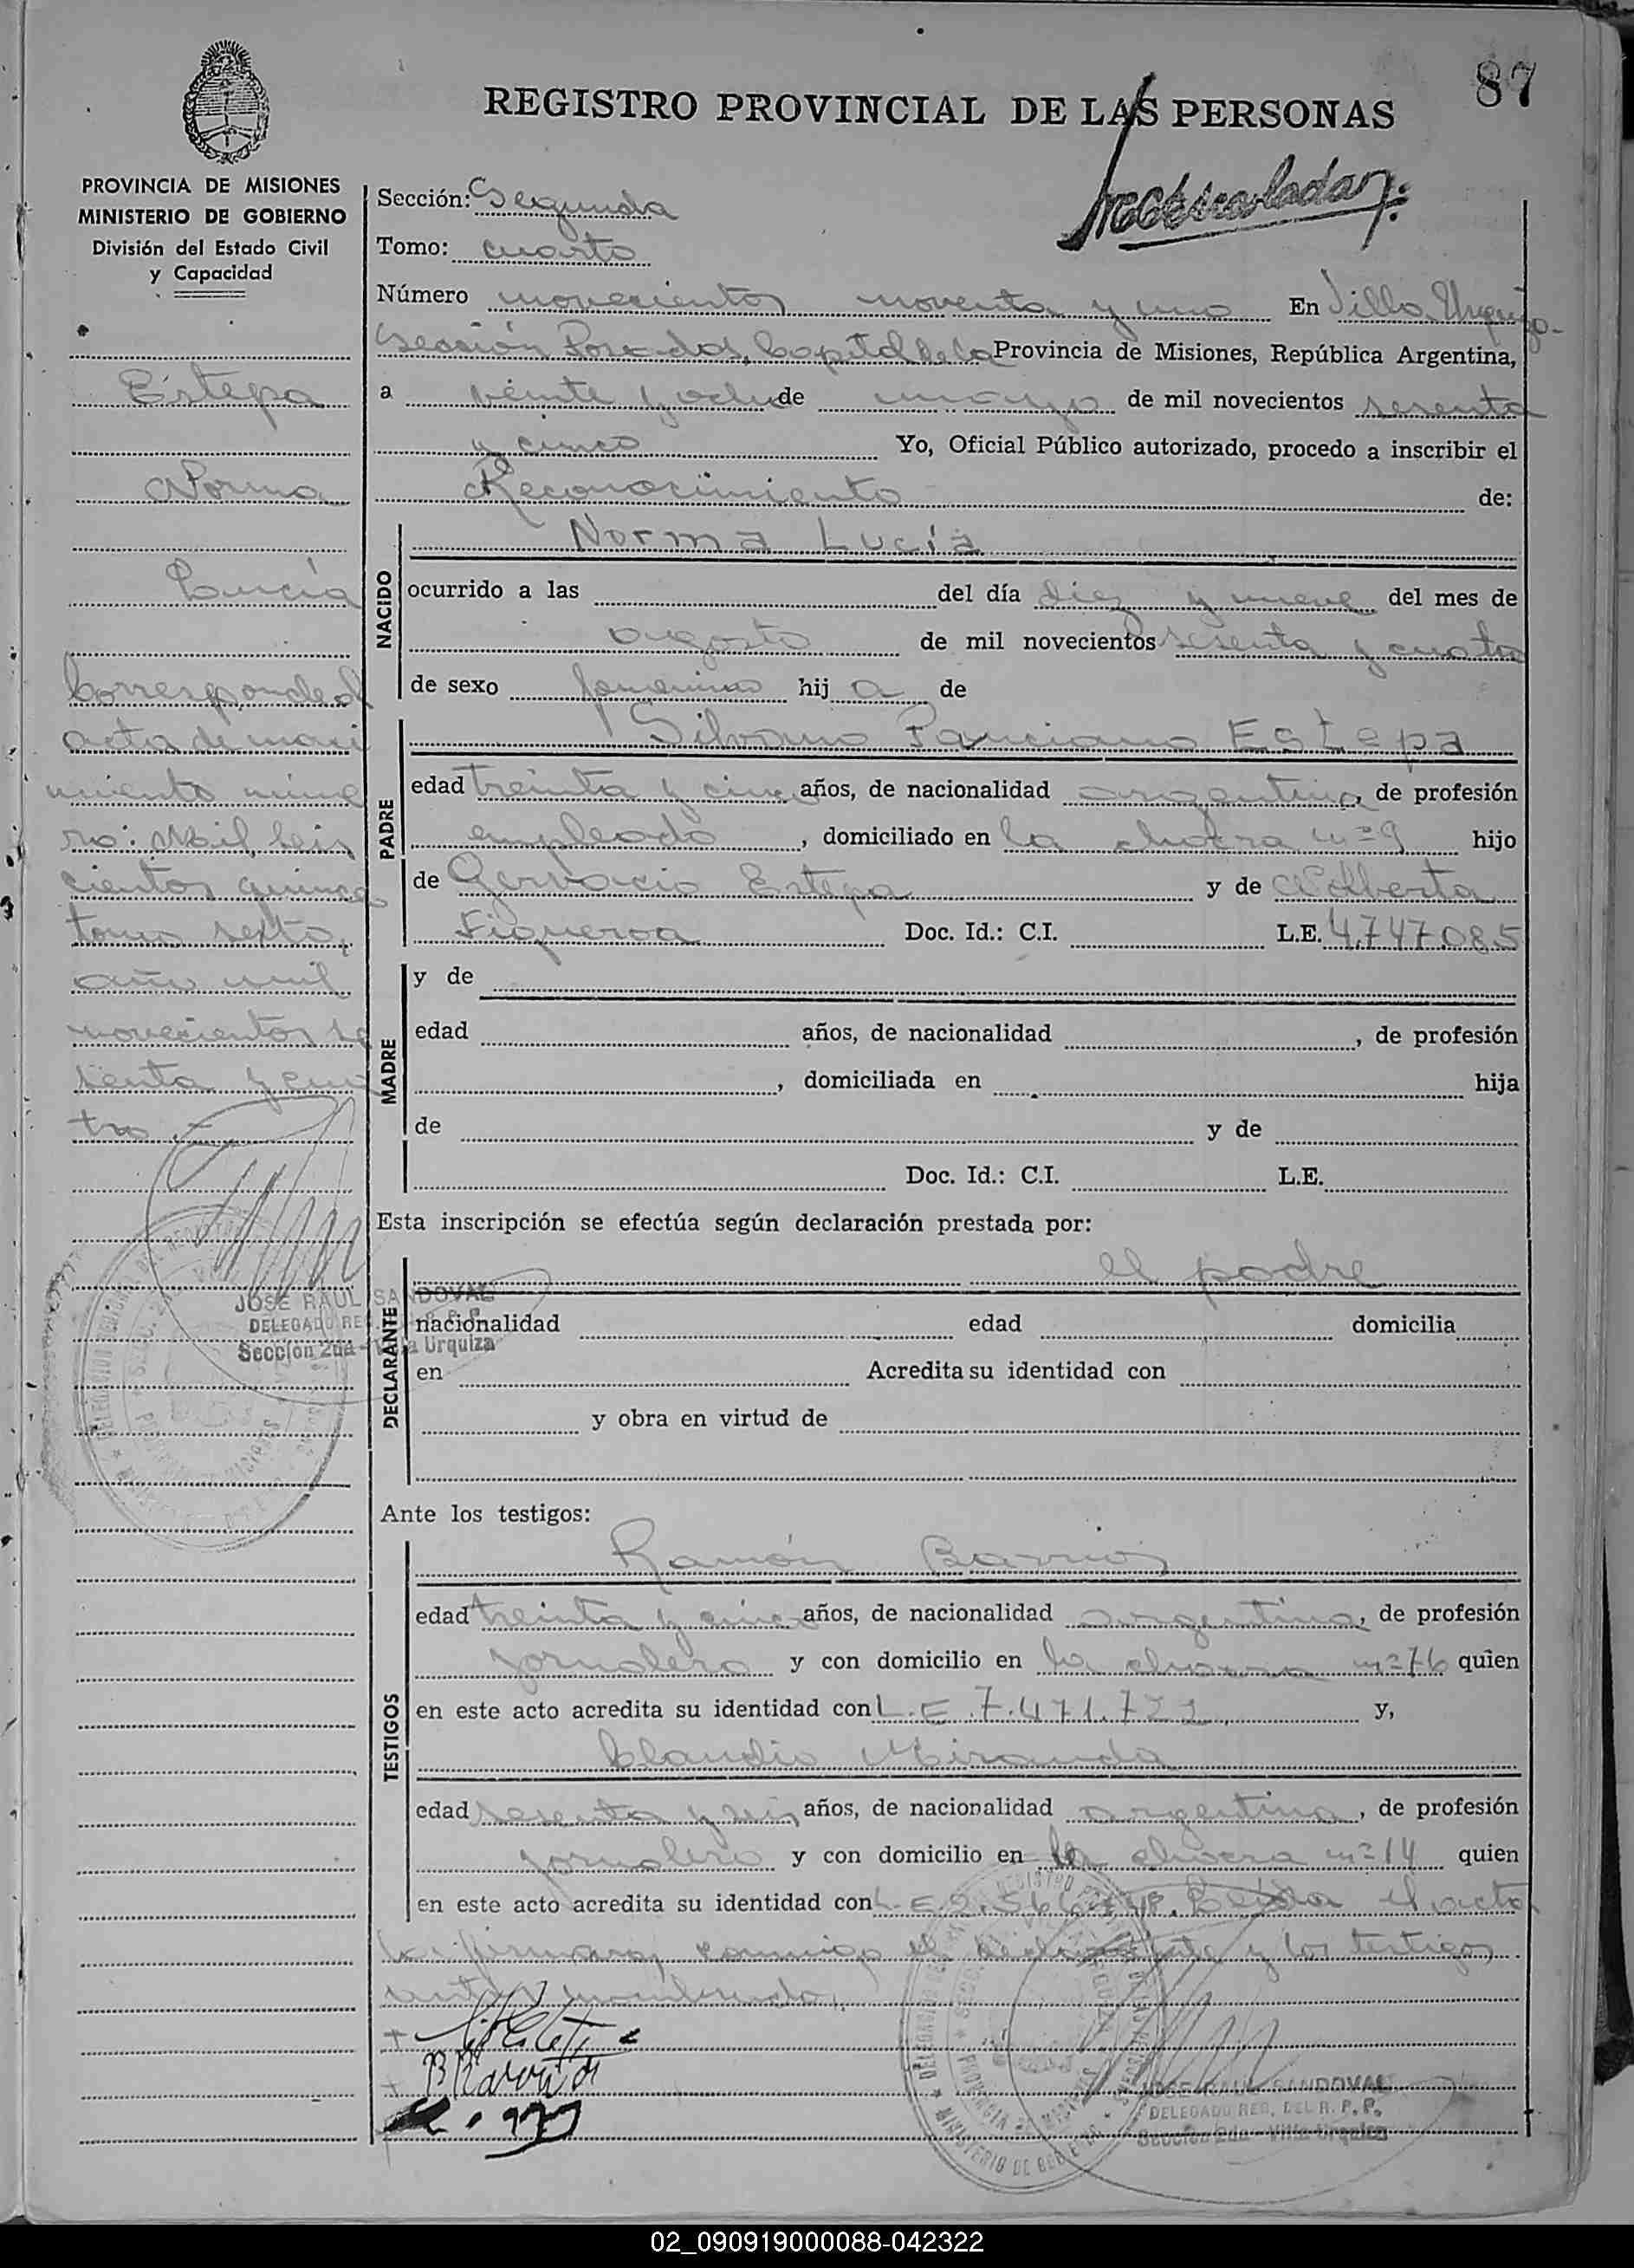 87
REGISTRO PROVINCIAL DE LAS PERSONAS
PROVINCIA DE MISIONES
MINISTERIO DE GOBIERNO
División del Estado Civil
y Capacidad
Estepa
Norma
Lucía
Corresponde al
acta de naci
miento núme
ro: Mil seis
cientos quince
tomo sexto,
año mil
novecientos se
senta y cua
tro
JOSE RAUL SANDOVAL
DELEGADO REG. DEL R. P. P.
Sección 2da - Villa Urquiza
Sección: Segunda
Tomo: cuarto
Número novecientos noventa y uno En Villa Urquiza-
Sección Posadas, Capital de la Provincia de Misiones, República Argentina,
a veinte y ocho de mayo de mil novecientos sesenta
y cinco Yo, Oficial Público autorizado, procedo a inscribir el
Reconocimiento de:
NACIDO
Norma Lucía
ocurrido a las del día diez y nueve del mes de
agosto de mil novecientos sesenta y cuatro
de sexo femenino hij a de
PADRE
Silvano Ponciano Estepa
edad treinta y cinco años, de nacionalidad argentina, de profesión
empleado, domiciliado en la chacra nº 9 hijo
de Gervacio Estepa y de Alberta
Figueroa Doc. Id.: C.I. L.E. 4.747.085
MADRE
y de
edad años, de nacionalidad , de profesión
, domiciliada en hija
de y de
Doc. Id.: C.I. L.E.
Esta inscripción se efectúa según declaración prestada por:
DECLARANTE
el padre
nacionalidad edad domicilia
en Acredita su identidad con
y obra en virtud de
Ante los testigos:
TESTIGOS
Ramón Barrios
edad treinta y cinco años, de nacionalidad argentina, de profesión
jornalero y con domicilio en la chacra nº 76 quien
en este acto acredita su identidad con L.E. 7.471.722 y,
Claudio Miranda
edad sesenta y seis años, de nacionalidad argentina, de profesión
jornalero y con domicilio en la chacra nº 14 quien
en este acto acredita su identidad con L.E. 2. Leída el acta
la firmaron conmigo el declarante y los testigos
antes nombrados.
JOSE RAUL SANDOVAL
DELEGADO REG. DEL R. P. P.
Sección 2da - Villa Urquiza
02_090919000088-042322